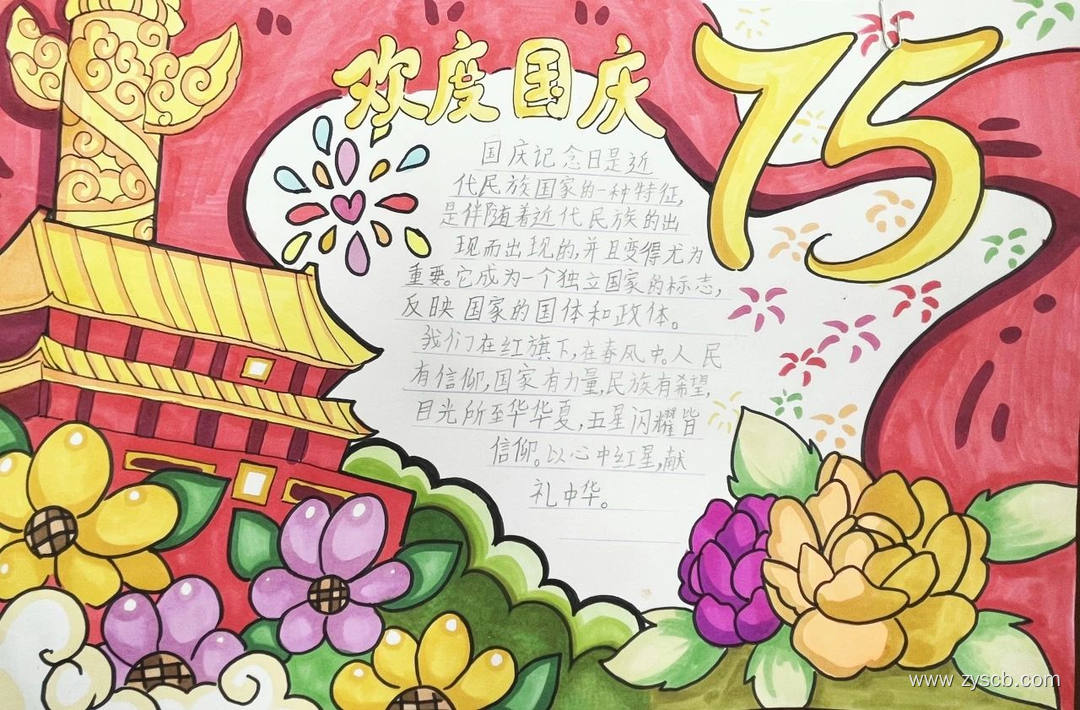 欢度国庆
75
国庆记念日是近
代民族国家的一种特征,
是伴随着近代民族的出
现而出现的,并且变得尤为
重要。它成为一个独立国家的标志,
反映国家的国体和政体。
我们在红旗下,在春风中。人民
有信仰,国家有力量,民族有希望,
目光所至华华夏,五星闪耀皆
信仰。以心中红星,献
礼中华。
www.zyscb.com